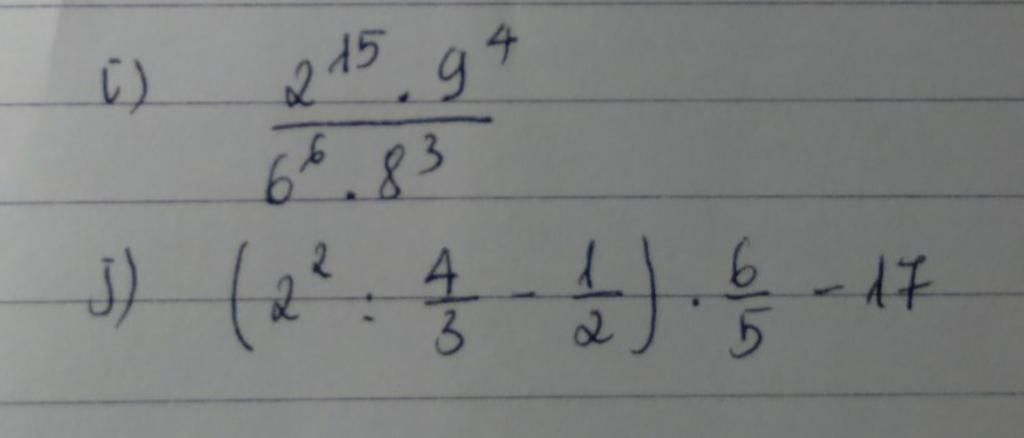 i) \frac{2^{15} . 9^4}{6^6 . 8^3}
j) (2^2 : \frac{4}{3} - \frac{1}{2}) . \frac{6}{5} - 17